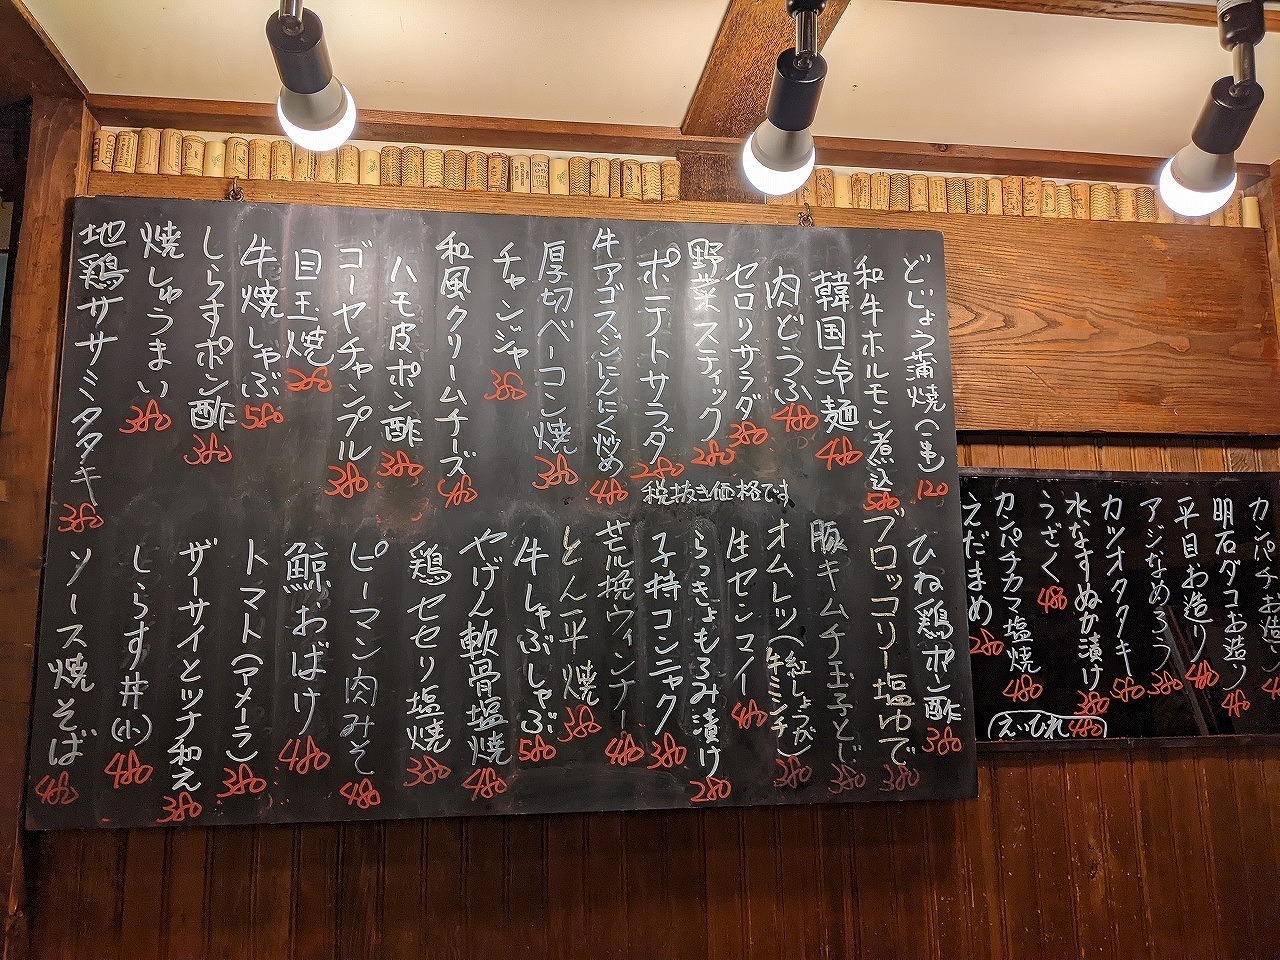 どじょう蒲焼(一串) 120
和牛ホルモン煮込 580
韓国冷麺 480
肉どうふ 480
セロリサラダ 380
野菜スティック 280
ポテトサラダ 280
牛アゴスジにんにく炒め 480
厚切ベーコン焼 380
チャンジャ 380
和風クリームチーズ 480
ハモ皮ポン酢 380
ゴーヤチャンプル 380
目玉焼
牛焼しゃぶ 580
しらすポン酢 380
焼しゅうまい 380
地鶏ササミタタキ 380
税抜き価格です
ひね鶏ポン酢 380
ブロッコリー塩ゆで 380
豚キムチ玉子とじ 380
オムレツ(紅しょうが)(牛ミンチ) 380
生センマイ 480
らっきょもろみ漬け 280
子持コンニャク 380
荒挽ウィンナー 480
とん平焼 380
牛しゃぶしゃぶ 580
やげん軟骨塩焼 480
鶏セセリ塩焼 380
ピーマン肉みそ 480
鯨おばけ 480
トマト(アメーラ) 380
ザーサイとツナ和え 380
しらす丼(小) 480
ソース焼そば 480
カンパチお造り
明石ダコお造り 480
平目お造り 480
アジなめろう 380
カツオタタキ 480
水なすぬか漬け 380
うざく 480
カンパチカマ塩焼 480
えだまめ 280
えいひれ 480